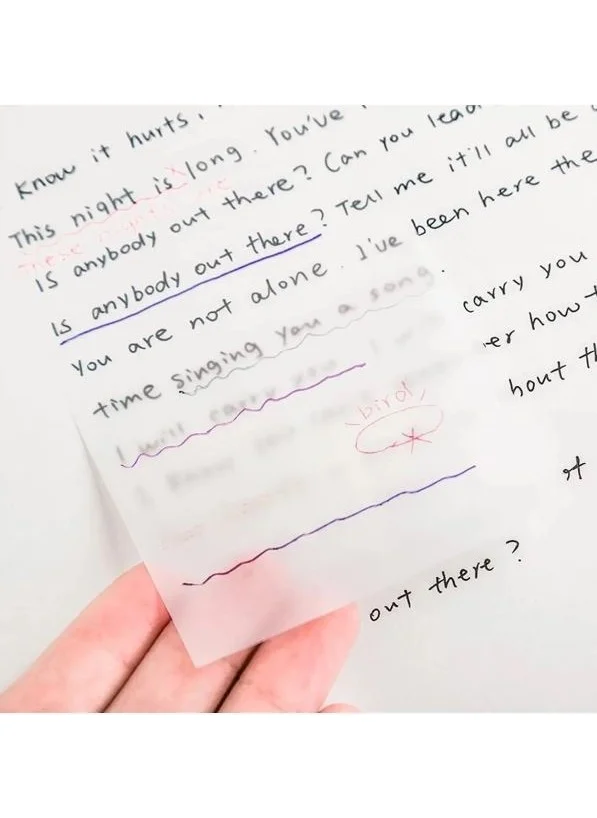 Know it hurts,
This night is long. You've
these nights are
Is anybody out there? Can you lead
Is anybody out there? Tell me it'll all be
You are not alone. I've been here the
time singing you a song.
I will carry you carry you
bird
er how
bout th
out there?